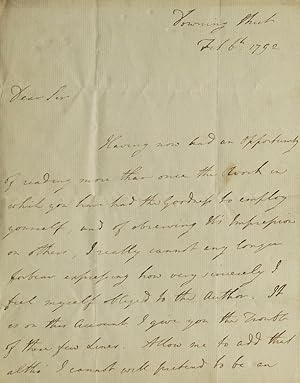 Downing Street
Feb 6th 1792
Dear Sir
Having now had an Opportunity
of reading more than once the Work in
which you have had the Goodness to employ
yourself, and of observing its Impression
on others, I really cannot any longer
forbear expressing how very sincerely I
feel myself obliged to the Author. It
is on this Account I give you the Trouble
of these few Lines. Allow me to add that
altho' I cannot well pretend to be an